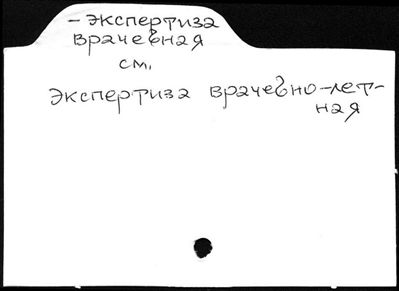 - экспертиза
врачебная
см.
экспертиза врачебно-лет-
ная